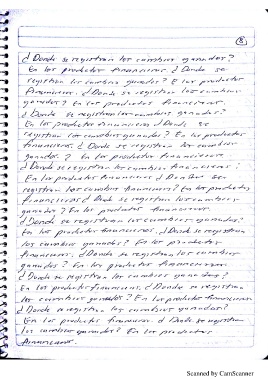 8
¿Donde se registran los cambios ganados?
En los productos financieros. ¿Donde se
registran los cambios ganados? En los productos
financieros. ¿Donde se registran los cambios
ganados? En los productos financieros.
¿Donde se registran los cambios ganados?
En los productos financieros. ¿Donde se
registran los cambios ganados? En los productos
financieros. ¿Donde se registran los cambios
ganados? En los productos financieros
¿Donde se registran los cambios
En los productos financieros. ¿Donde se
registran los cambios En los productos
financieros ¿Donde se registran los cambios
ganados? En los productos financieros.
¿Donde se registran los cambios ganados?
En los productos financieros. ¿Donde se registran
los cambios ganados? En los productos
financieros. ¿Donde se registran los cambios
ganados? En los productos financieros
¿Donde se registran los cambios ganados?
En los productos financieros. ¿Donde se registran
los cambios ganados? En los productos financieros
¿Donde se registran los cambios ganados?
En los productos financieros ¿Donde se registran
los cambios ganados? En los productos
financieros.
Scanned by CamScanner